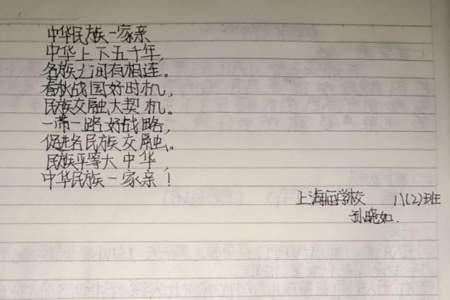 中华民族一家亲
中华上下五千年,
各族之间有相连。
春秋战国好时机,
民族交融大契机。
一带一路好战略,
促进各民族交融。
民族平等大中华,
中华民族一家亲!
上海 学校 八(2)班
孙晓如.